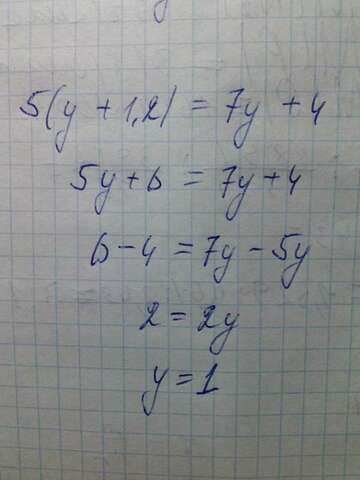 5(y + 1,2) = 7y + 4
5y + 6 = 7y + 4
6 - 4 = 7y - 5y
2 = 2y
y = 1